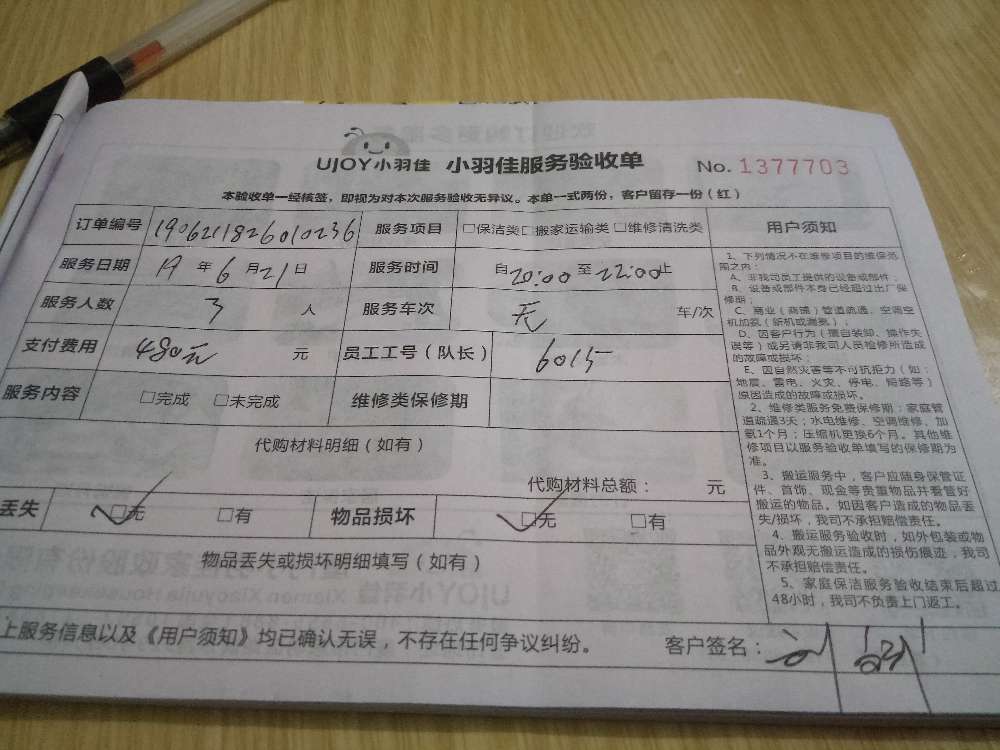 UJOY小羽佳 小羽佳服务验收单 No. 1377703
本验收单一经核签，即视为对本次服务验收无异议。本单一式两份，客户留存一份（红）
订单编号 1906211826010236 服务项目 □保洁类□搬家运输类 □维修清洗类
服务日期 19年6月21日 服务时间 自20:00至22:00止
服务人数 3 人 服务车次 无 车/次
支付费用 480元 元 员工工号（队长） 6015
服务内容 □完成 □未完成 维修类保修期
代购材料明细（如有）
代购材料总额： 元
丢失 □无 □有 物品损坏 □无 □有
物品丢失或损坏明细填写（如有）
上服务信息以及《用户须知》均已确认无误，不存在任何争议纠纷。 客户签名：
用户须知
1、下列情况不在维修项目的维保范
围之内：
A、非我司员工提供的设备或部件；
B、设备或部件本身已经超过出厂保
修期；
C、商业（商铺）管道疏通、空调空
机加氨（新机或漏氨）；
D、因客户行为（擅自装卸、操作失
误等）或另请非我司人员检修所造成
的故障或损坏；
E、因自然灾害等不可抗拒力（如：
地震、雷电、火灾、停电、短路等）
原因造成的故障或损坏。
2、维修类服务免费保修期：家庭管
道疏通3天；水电维修、空调维修、加
氨1个月；压缩机更换6个月。其他维
修项目以服务验收单填写的保修期为
准。
3、搬运服务中，客户应随身保管证
件、首饰、现金等贵重物品并看管好
搬运的物品。如因客户造成的物品丢
失/损坏，我司不承担赔偿责任。
4、搬运服务验收时，如外包装或物
品外观无搬运造成的损伤痕迹，我司
不承担赔偿责任。
5、家庭保洁服务验收结束后超过
48小时，我司不负责上门返工。